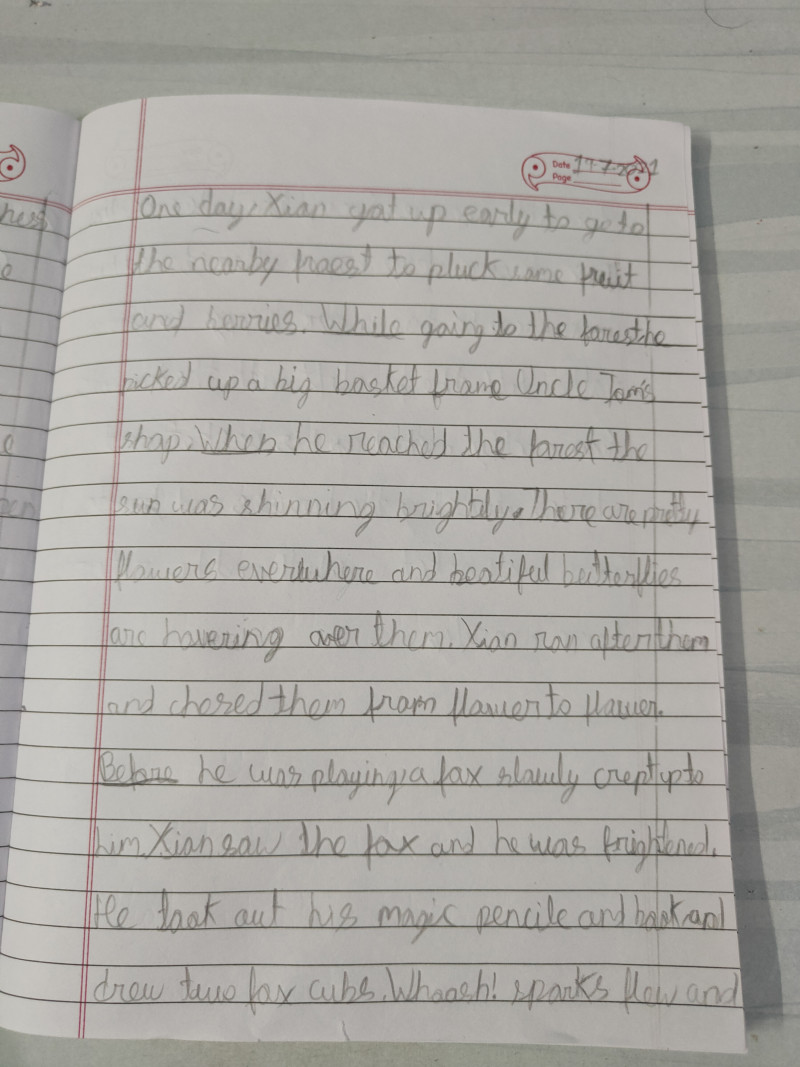 Date 17-7-2021
Page
One day, Xian got up early to go to
the nearby forest to pluck some fruit
and berries. While going to the forest he
picked up a big basket frome Uncle Tom's
shop. When he reached the forest the
sun was shinning brightly. There are pretty
flowers everwhere and beatiful butterflies
are hovering over them. Xian ran after them
and chased them from flower to flower.
Before he was playing, a fox slowly crept up to
him. Xian saw the fox and he was frightened.
He took out his magic pencile and book and
drew two fox cubs. Whoosh! sparks flew and